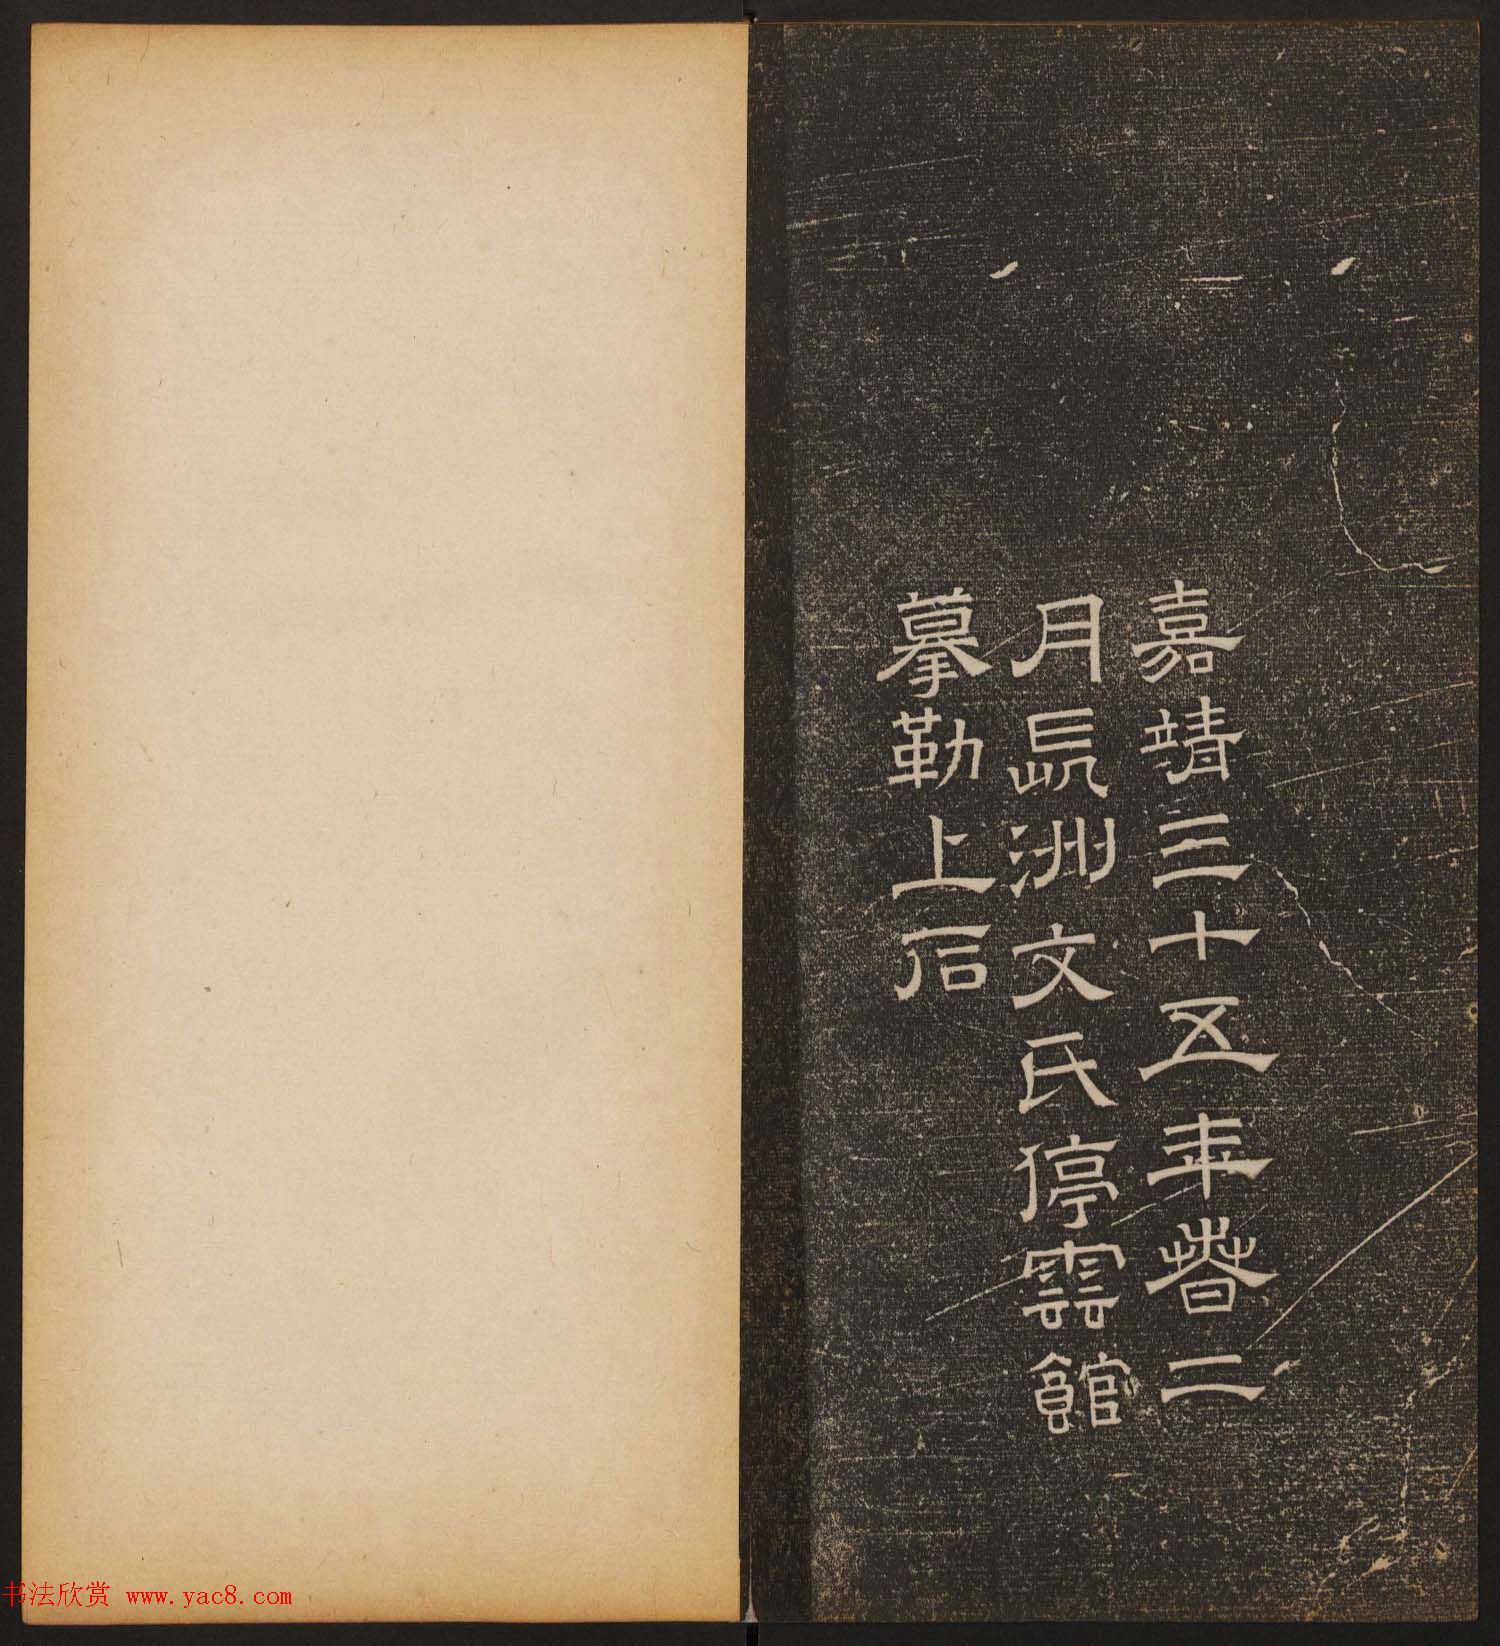 嘉靖三十五年春二
月長洲文氏停雲館
摹勒上石
书法欣赏 www.yac8.com